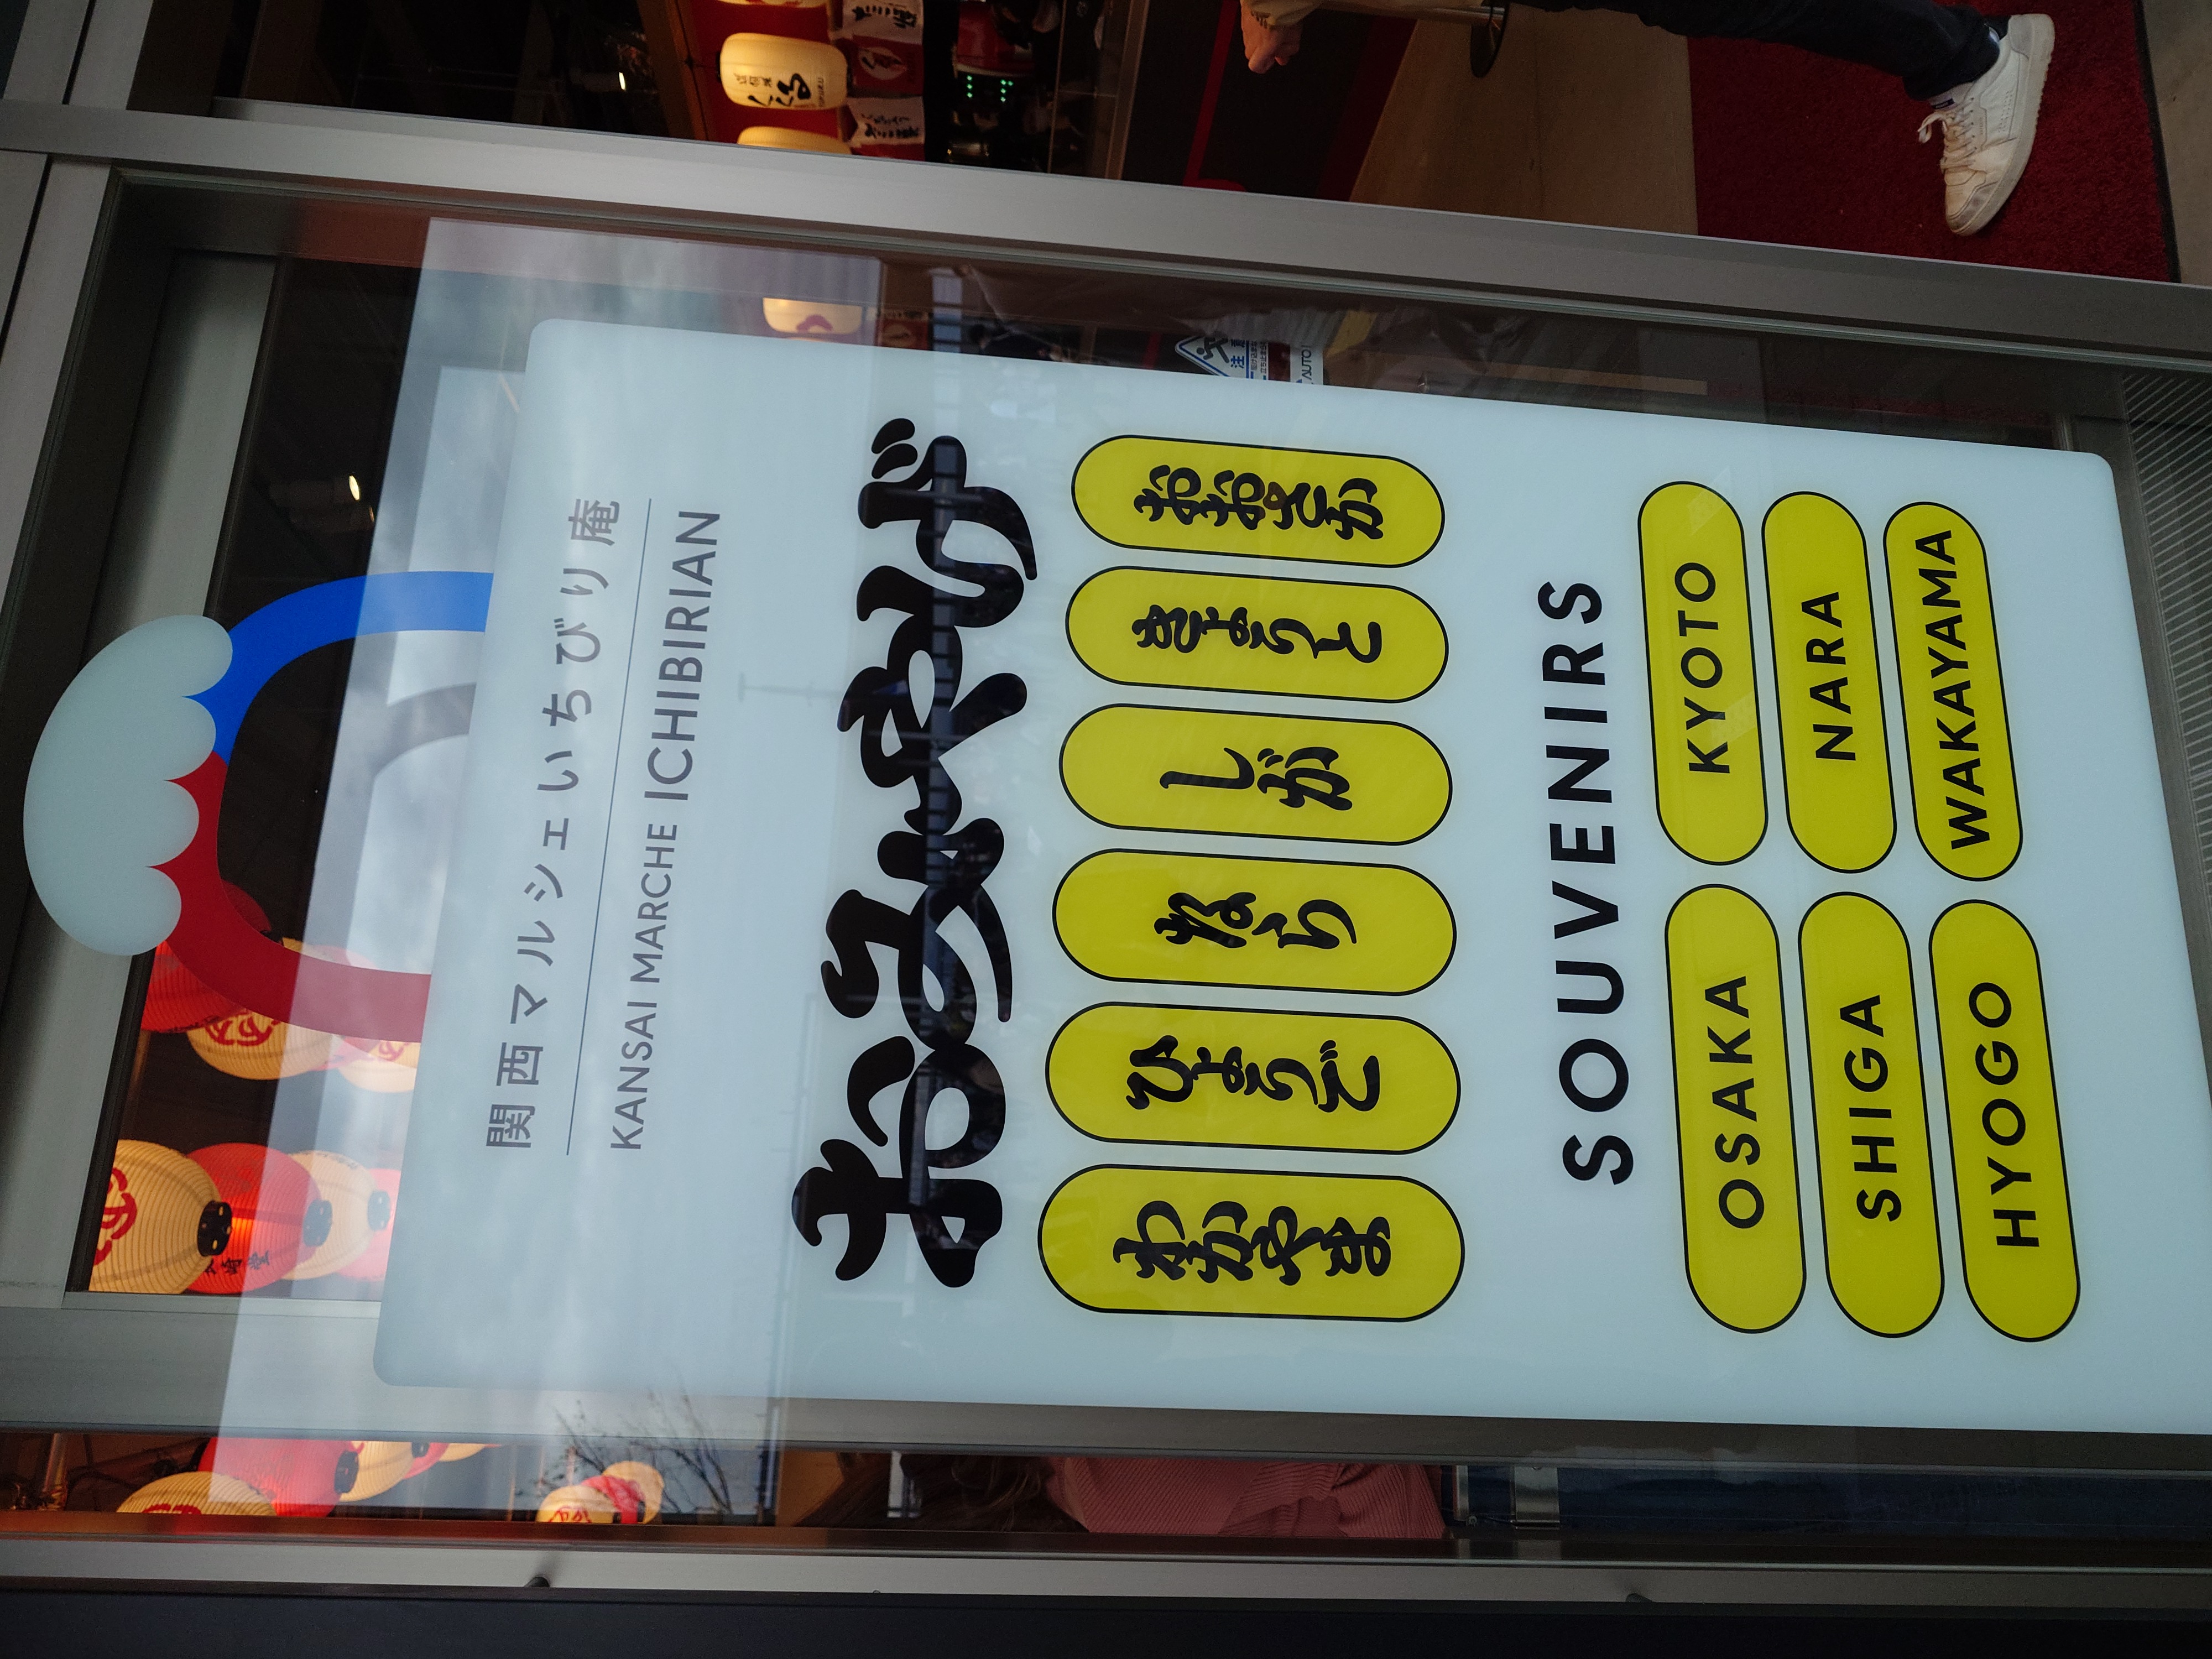 関西マルシェいちびり庵
KANSAI MARCHE ICHIBIRIAN
おみやげ
おおさか
きょうと
しが
なら
ひょうご
わかやま
SOUVENIRS
OSAKA KYOTO
SHIGA NARA
HYOGO WAKAYAMA
注意
AUTO